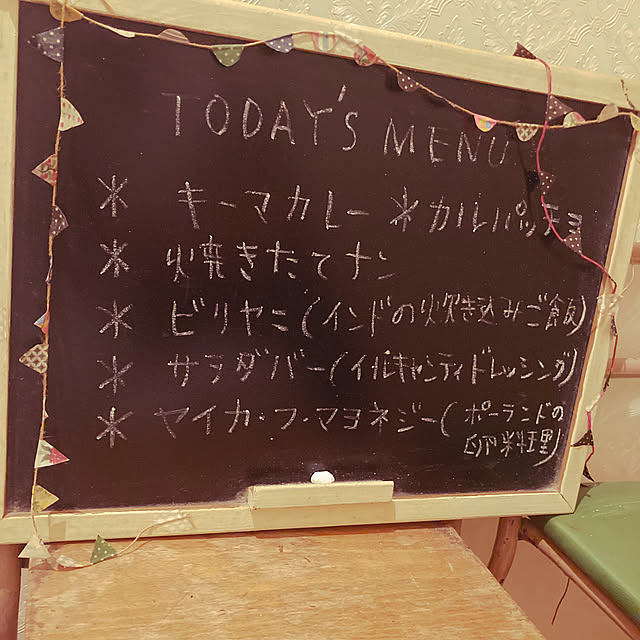 TODAY'S MENU
* キーマカレー * カルパッチョ
* 焼きたてナン
* ビリヤニ(インドの炊き込みご飯)
* サラダバー(イルキャンティドレッシング)
* ヤイカ・フ・マヨネジー(ポーランドの
卵料理)